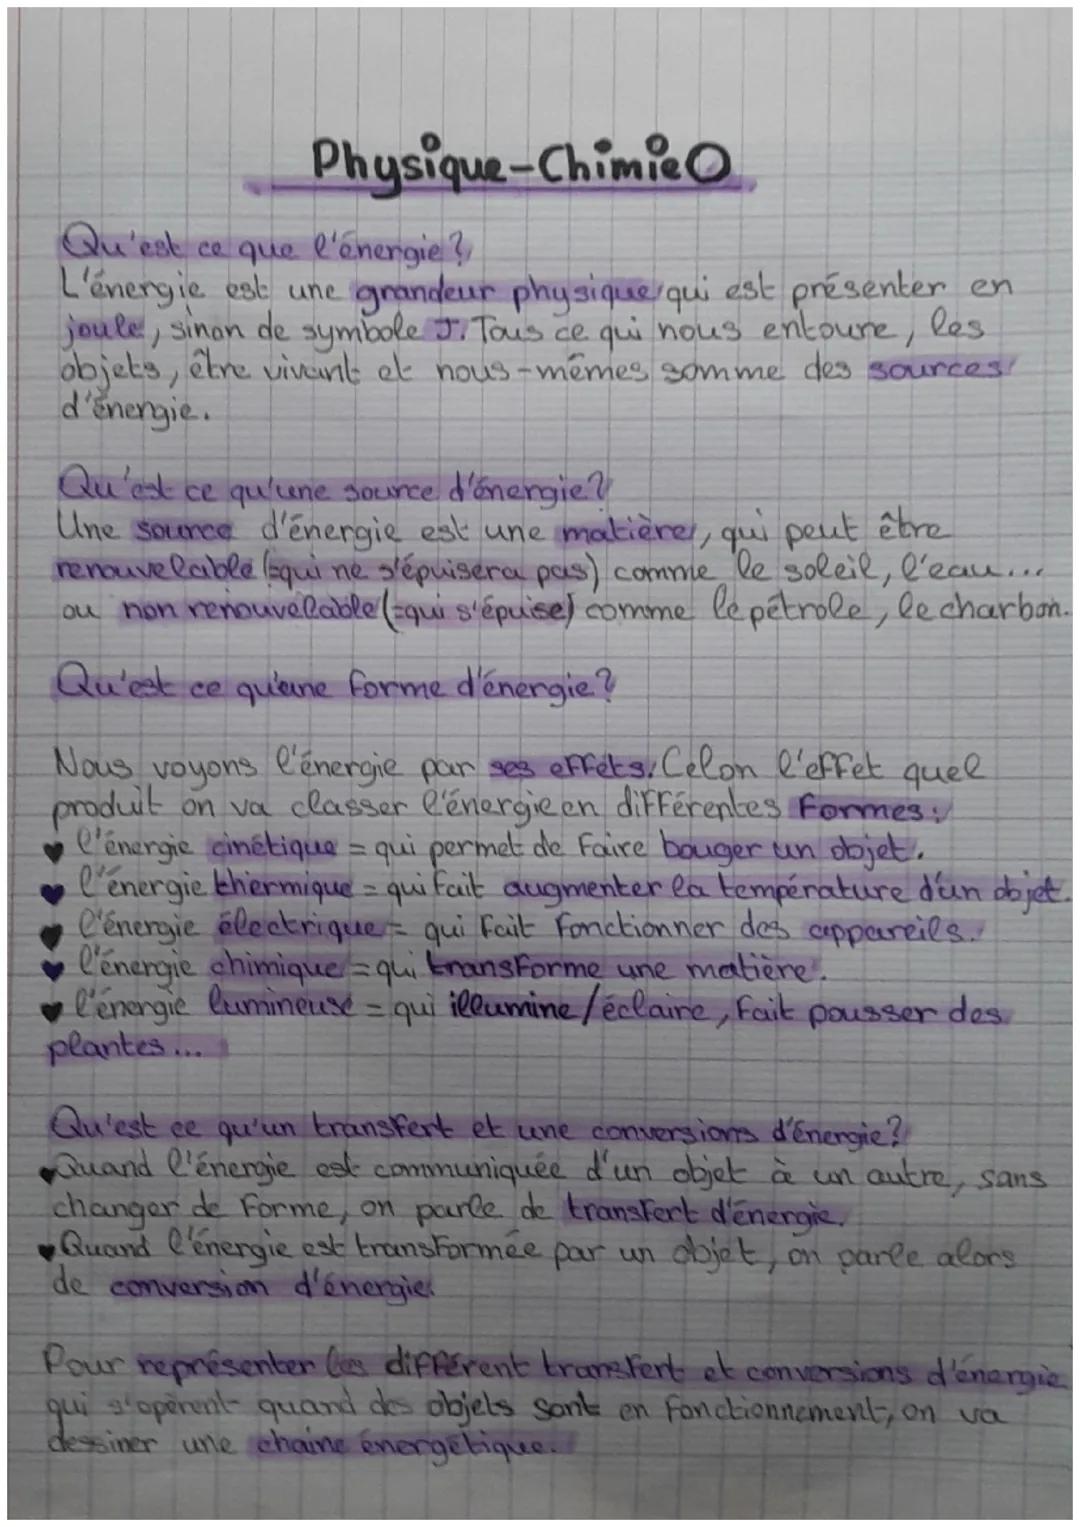 Physique-Chimie
Qu'est ce que l'énergie?
L'énergie est une grandeur physique qui est présenter en
joule, sinon de symbole J. Tous ce qui nous entoure, les
objets, être vivant et nous-mêmes somme des sources
d'énergie.
Qu'est ce qu'une source d'énergie?
Une source d'énergie est une matière, qui peut être
renouvelable (=qui ne s'épuisera pas) comme le soleil, l'eau...
ou non renouvelable (=qui s'épuise) comme le pétrole, le charbon.
Qu'est ce qu'une forme d'énergie?
Nous voyons l'énergie par ses effets. Celon l'effet quel
produit on va classer l'énergie en différentes formes:
♥ l'énergie cinétique = qui permet de faire bouger un objet.
♥ l'énergie thermique = qui fait augmenter la température d'un objet.
♥ l'énergie électrique = qui fait fonctionner des appareils.
♥ l'énergie chimique = qui transforme une matière.
♥ l'énergie lumineuse = qui illumine/éclaire, fait pousser des
plantes...
Qu'est ce qu'un transfert et une conversions d'énergie?
♥ Quand l'énergie est communiquée d'un objet à un autre, sans
changer de forme, on parle de transfert d'énergie.
♥ Quand l'énergie est transformée par un objet, on parle alors
de conversion d'énergie.
Pour représenter les différent transfert et conversions d'énergie
qui s'opèrent quand des objets sont en fonctionnement, on va
dessiner une chaine énergétique.